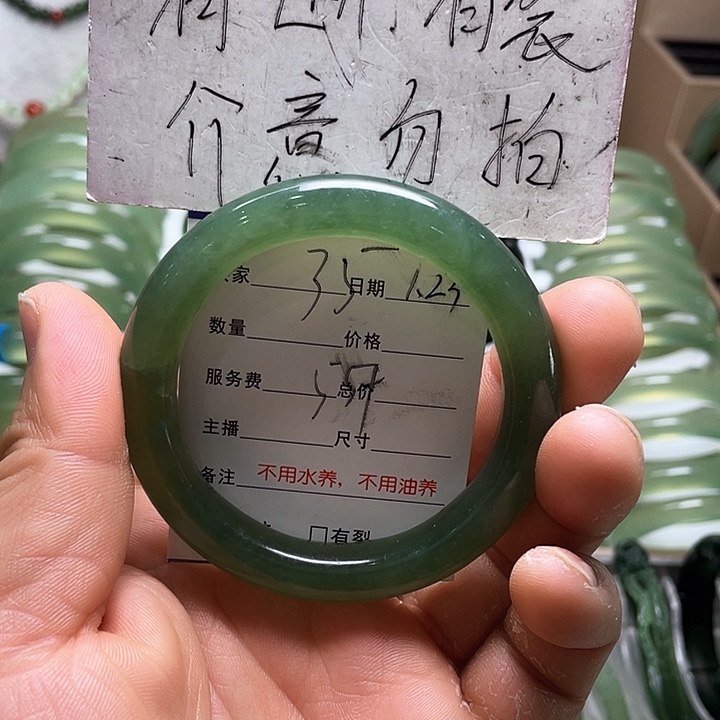 有断有裂
介意勿拍
家 35 日期 1.25
数量 价格
服务费 总价
57
主播 尺寸
备注 不用水养，不用油养
口有裂